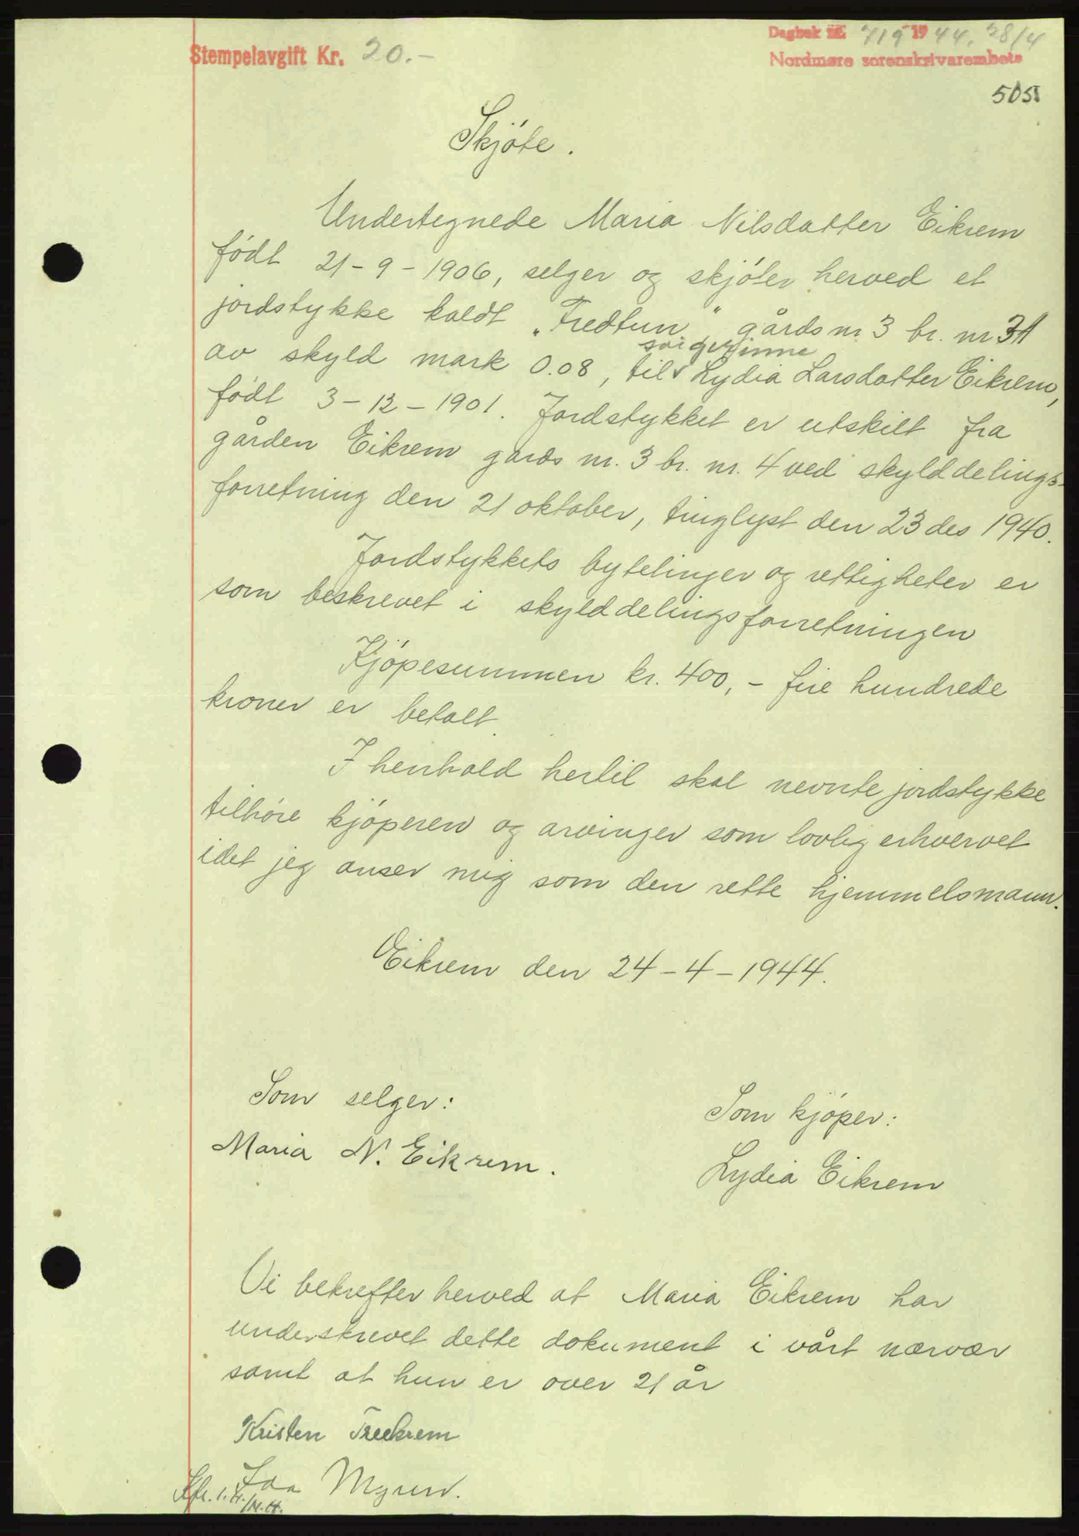 Stempelavgift Kr. 20.-
Dagbok nr. 719 1944, 28/4
Nordmøre sorenskriverembete
505
Skjøte.
Undertegnede Maria Nilsdatter Eikrem
født 21-9-1906, selger og skjøter herved et
jordstykke kaldt „Fredtun“, gårds nr 3 br. nr 31
av skyld mark 0.08, til svigerinne Lydia Larsdatter Eikrem,
født 3-12-1901. Jordstykket er utskilt fra
gården Eikrem gards nr. 3 br. nr. 4 ved skylddelings-
forretning den 21 oktober, tinglyst den 23 des 1940.
Jordstykkets bytelinjer og rettigheter er
som beskrevet i skylddelingsforretningen
Kjøpesummen kr. 400,- fire hundrede
kroner er betalt.
I henhold hertil skal nevnte jordstykke
tilhøre kjøperen og arvinger som lovlig erhvervet
idet jeg anser mig som den rette hjemmelsmann.
Eikrem den 24-4-1944.
Som selger:
Maria N. Eikrem.
Som kjøper:
Lydia Eikrem
Vi bekrefter herved at Maria Eikrem har
underskrevet dette dokument i vårt nærvær
samt at hun er over 21 år
Kristen Treekrem
Myren.
Kfr. 1.H./M.H.